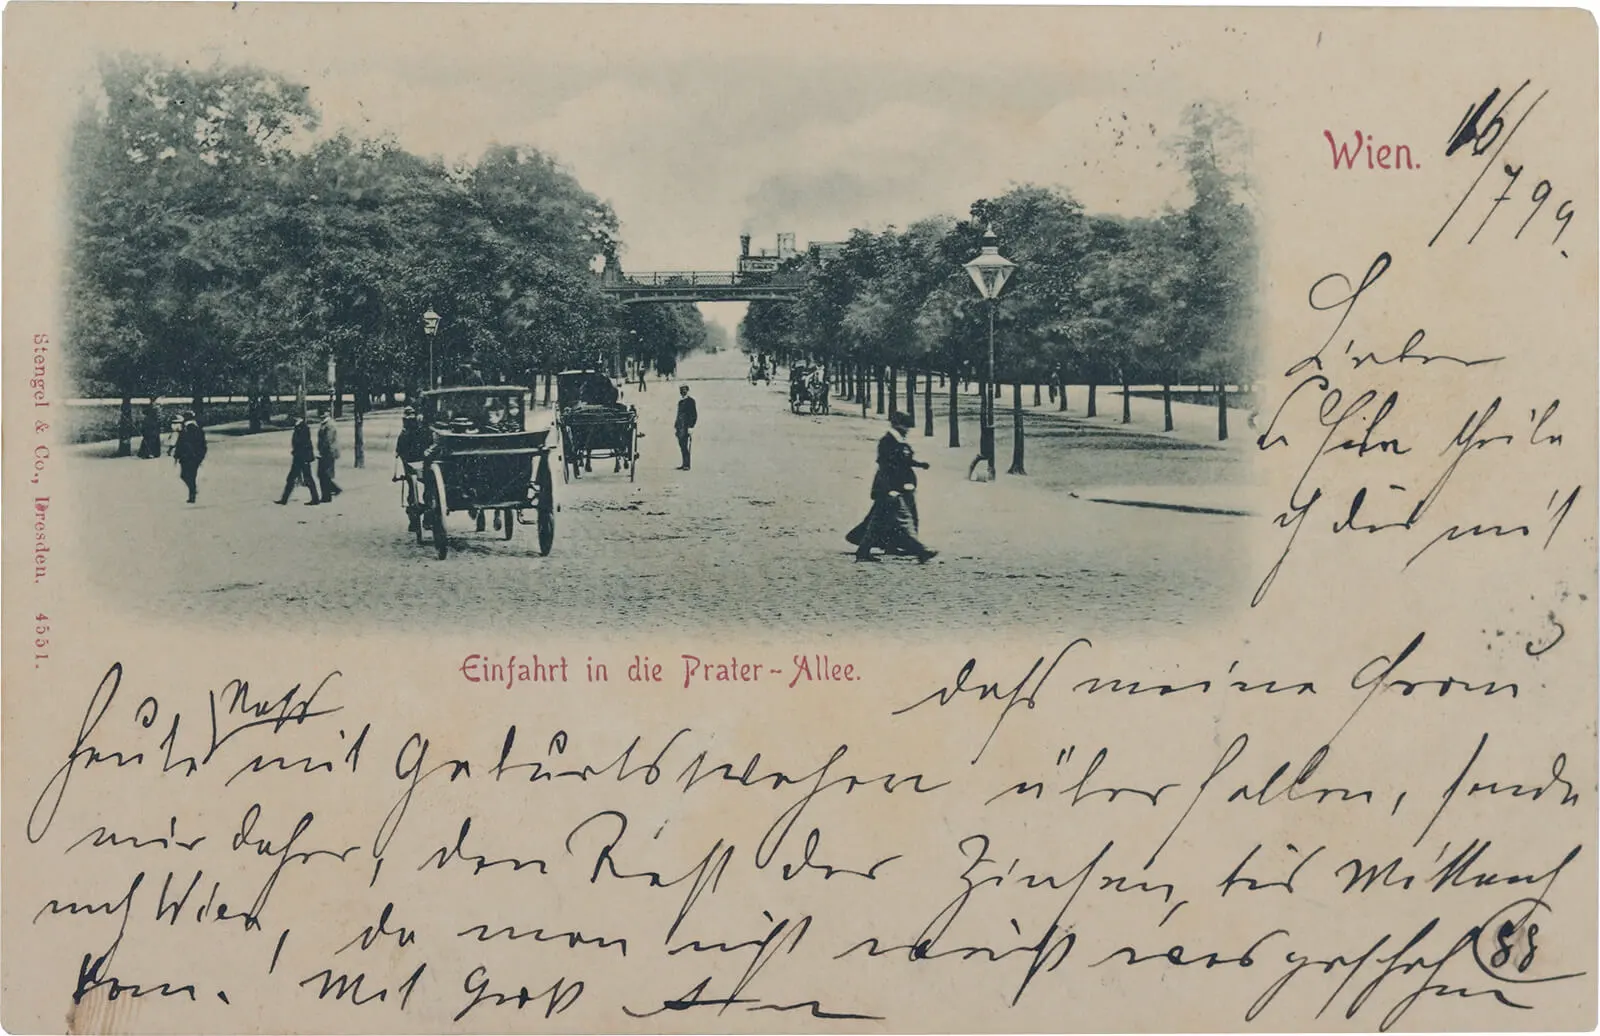 Wien. 16/7 99.
Lieber
theile
ich dir mit
Einfahrt in die Prater-Allee.
dass meine Frau
heute Nachts
mit Geburtswehen überfallen, sende
mir daher, den Rest der Zinsen, bis Mittwoch
nach Wien, da man nicht weiß was geschehen
kann. Mit Gruß
88
Stengel & Co., Dresden. 4551.